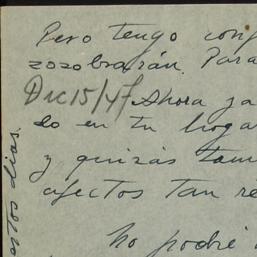 Pero tengo conf
zozobrarán. Para
Dic 15/47 Ahora ya
do en tu hoga
y quizás tam
afectos tan re
No podré
estos dias.